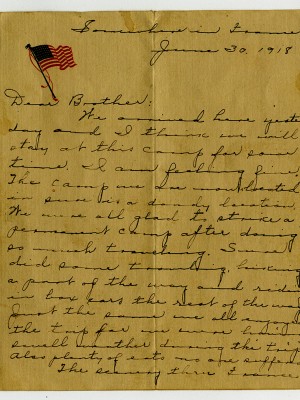 Somewhere in France
June 30, 1918
Dear Brother:
We arrived here yester
day and I think we will
stay at this camp for some
time. I am feeling fine,
The camp we are now located
in sure is a dandy location
We were all glad to strike a
permanent camp after doing
so much traveling. Sure
did some traveling, hiking
a part of the way and riding
in box cars the rest of the way
Just the same we all enjoyed
the trip for we sure had
swell weather during the trip
Also plenty of eats no one suffered
The scenery thru France